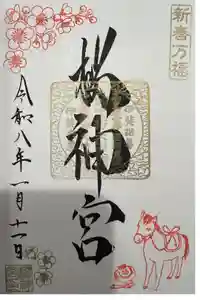 新春万福
桜神宮
令和八年一月十一日